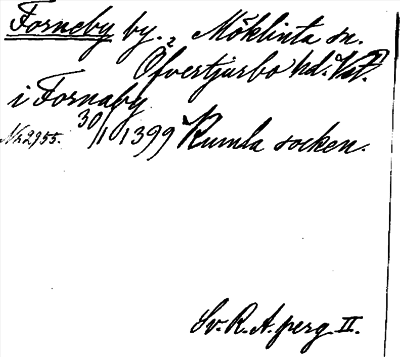 Forneby by. Möklinta sn.
Öfvertjurbo hd. Vst.
i Fornaby
Nr. 2955. 30/10 1399 Kumla socken.
Sv. R. A. perg. II.